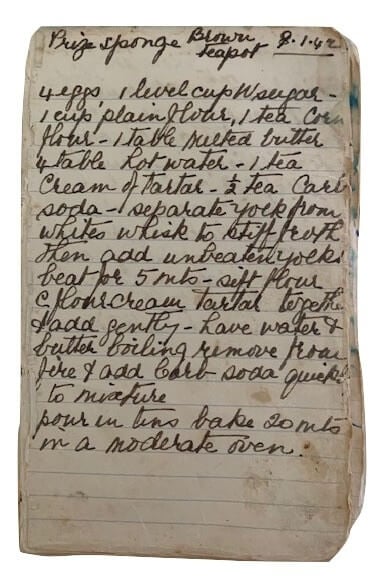 Prize sponge Brown teapot 8.1.42
4 eggs, 1 level cup W sugar -
1 cup plain flour, 1 tea Corn
flour - 1 table melted butter
4 table hot water - 1 tea
Cream of tartar - ½ tea Carb
soda - separate yock from
whites whisk to stiff froth
then add unbeaten yocks
beat for 5 mts - sift flour
C flour cream tartar togethe
& add gently - have water &
butter boiling remove from
fire & add Carb soda quick
to mixture
pour in tins bake 20 mts
in a moderate oven.